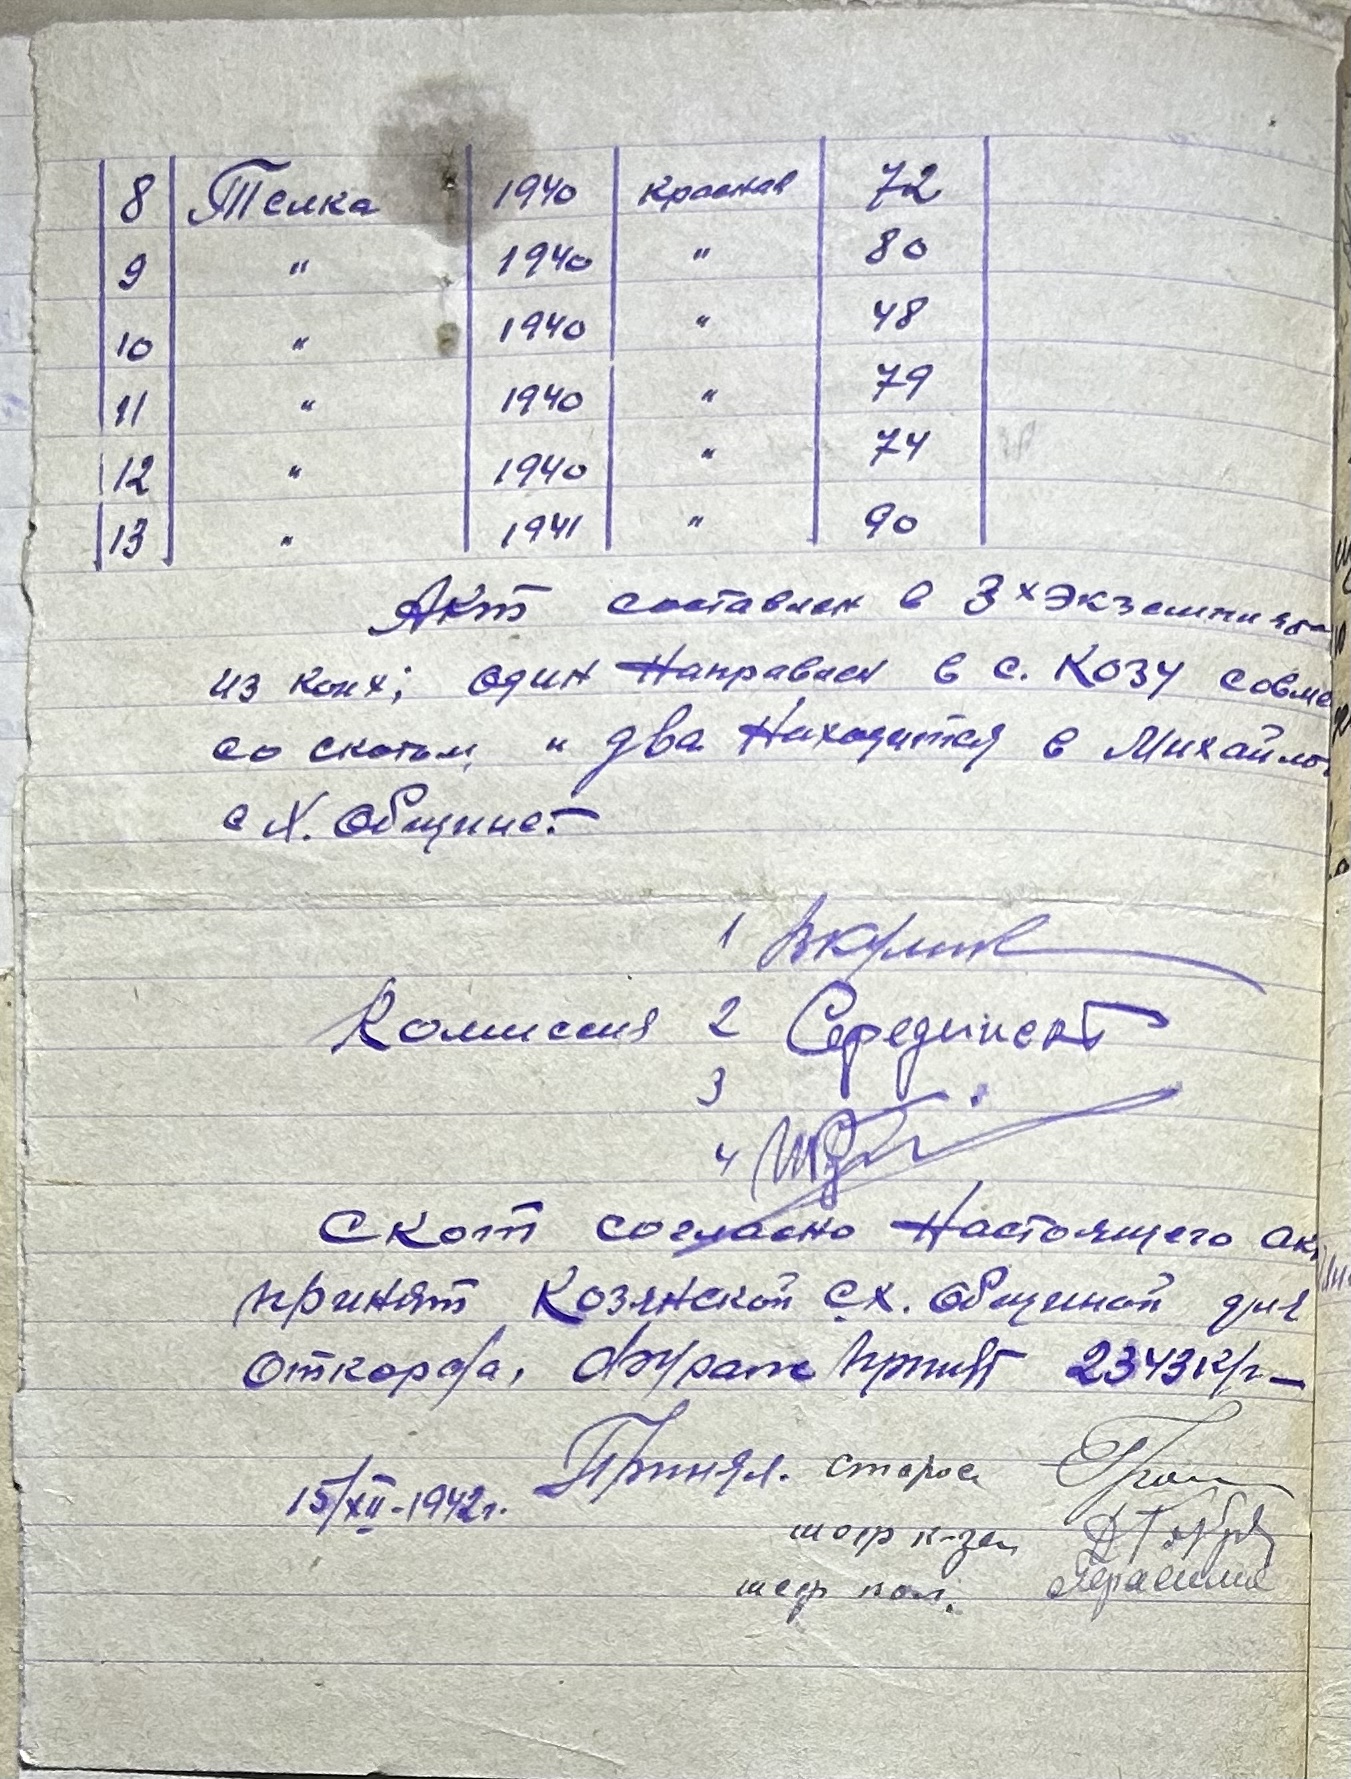 8 Телка 1940 Красная 72
9 " 1940 " 80
10 " 1940 " 48
11 " 1940 " 79
12 " 1940 " 74
13 " 1941 " 90
Акт составлен в 3х экземпля
из коих; один Направлен в с. Козу совме
со скотом, и два Находится в Михайло
с х. общине.
1
Комиссия 2
3
4
Скот согласно Настоящего ак
принят Козянской с.х. общиной для
откорма, фураж принят 2343 кг
Принял. староста
15/XII-1942г.
шеф пол.